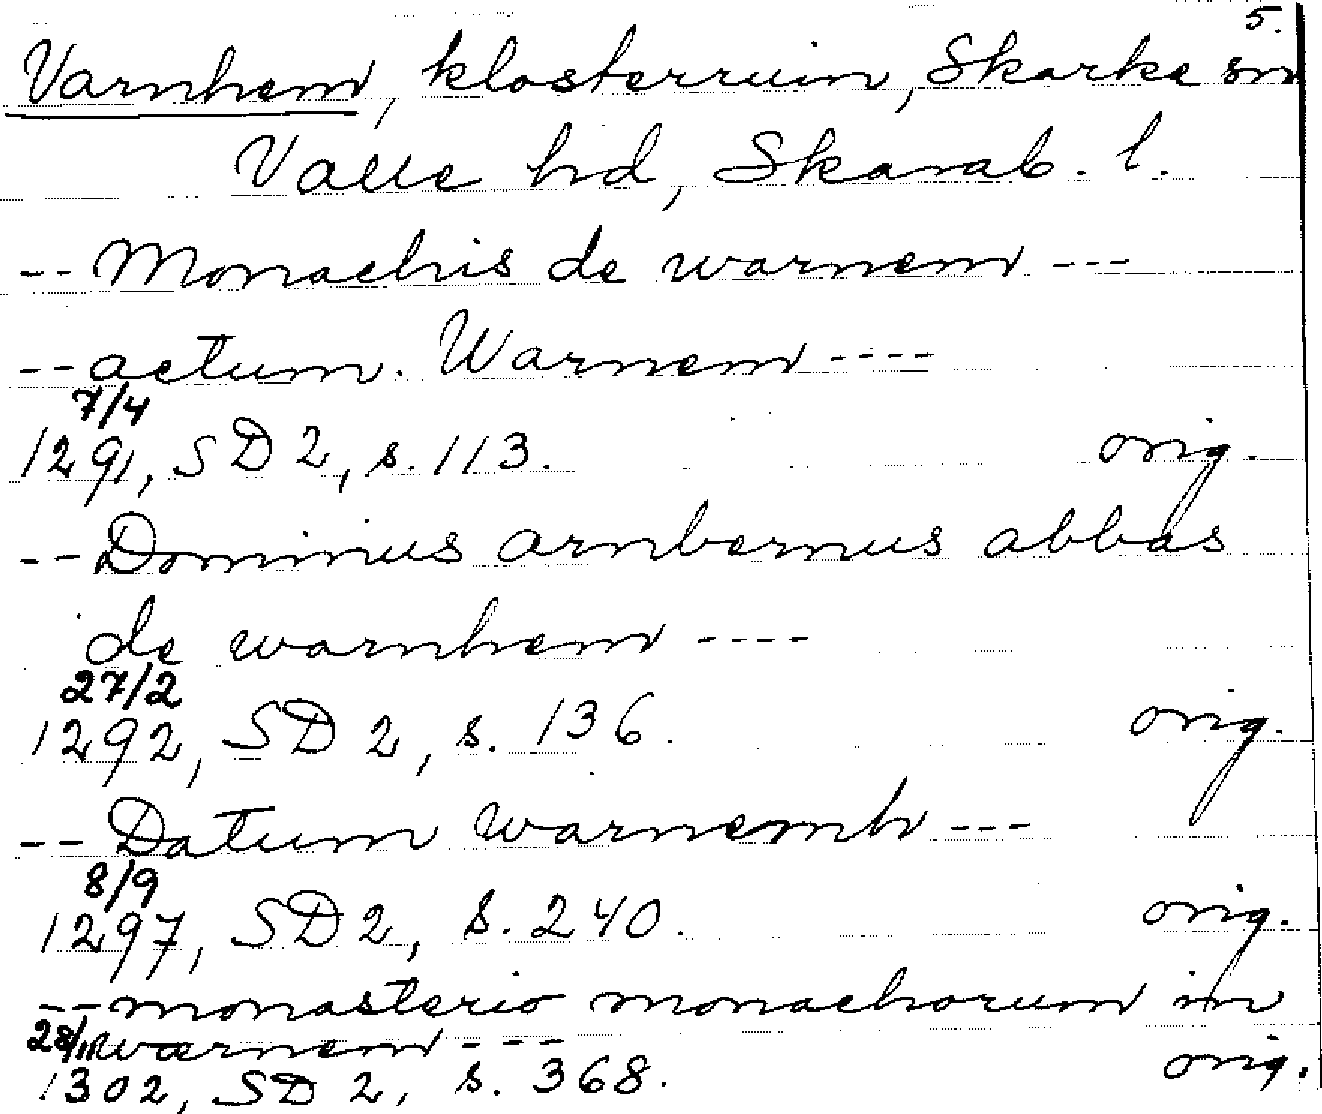 5.
Varnhem, klosterruin, Skarke sn
Valle hd, Skarab. l.
-- Monachis de warnem ---
-- actum. Warnem ----
7/4
1291, SD 2, s. 113. orig.
-- Dominus arnbernus abbas
de warnhem ----
27/2
1292, SD 2, s. 136. orig.
-- Datum warnemh ---
8/9
1297, SD 2, s. 240. orig.
-- monasterio monachorum in
warnem ---
1302, SD 2, s. 368. orig.